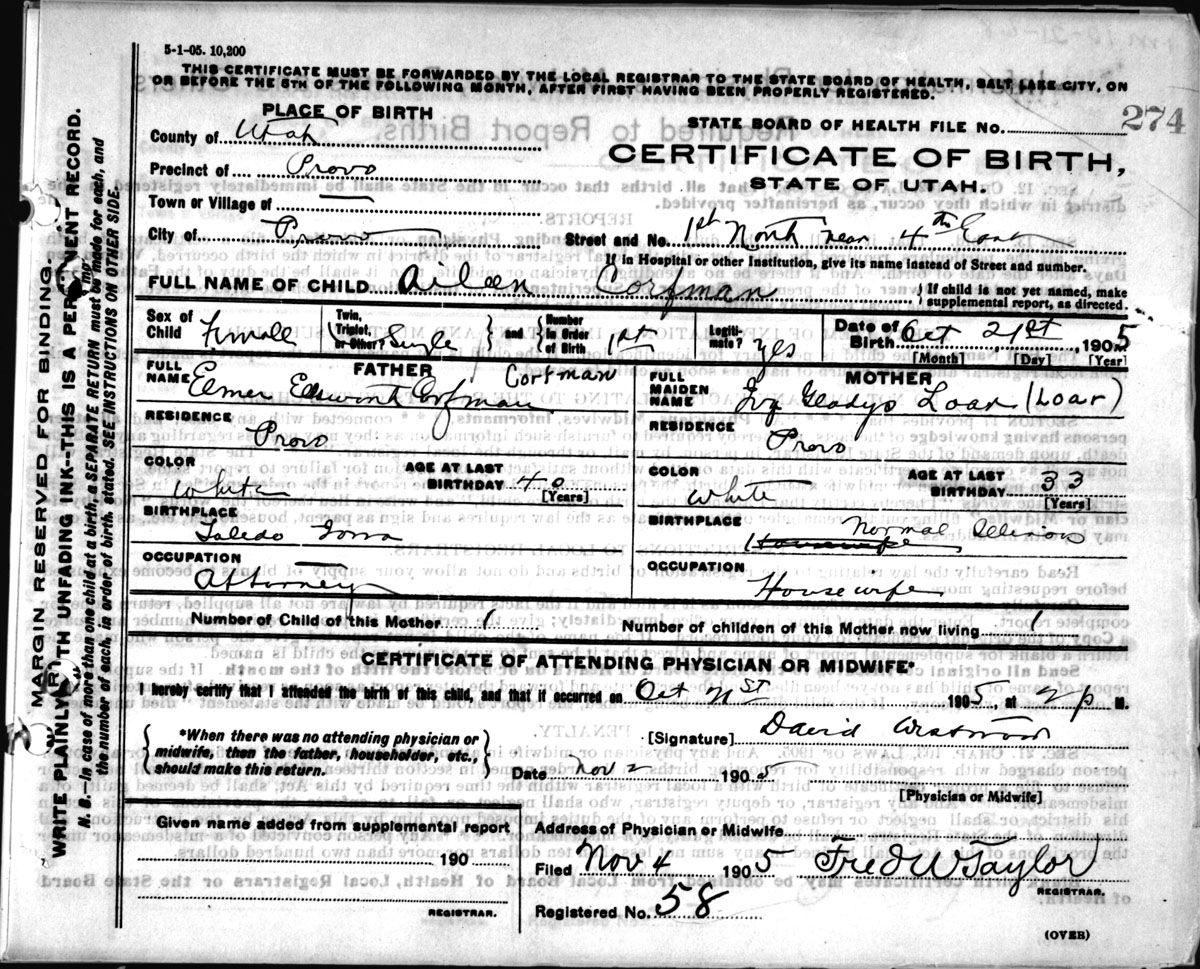 5-1-05. 10,200
THIS CERTIFICATE MUST BE FORWARDED BY THE LOCAL REGISTRAR TO THE STATE BOARD OF HEALTH, SALT LAKE CITY, ON
OR BEFORE THE 5TH OF THE FOLLOWING MONTH, AFTER FIRST HAVING BEEN PROPERLY REGISTERED.
PLACE OF BIRTH
STATE BOARD OF HEALTH FILE No. 274
County of Utah
CERTIFICATE OF BIRTH,
Precinct of Provo
STATE OF UTAH.
Town or Village of —
City of Provo
Street and No. 1st North near 4th East
If in Hospital or other Institution, give its name instead of Street and number.
FULL NAME OF CHILD Aileen Corfman
{If child is not yet named, make
supplemental report, as directed.
Sex of Child Female
Twin, Triplet, or Other? Single } and { Number in Order of Birth 1st
Legiti-mate? yes
Date of Birth Oct 21st 1905
[Month] [Day] [Year]
FATHER
FULL NAME Elmer Ellsworth Corfman Corfman
RESIDENCE
Provo
COLOR
White
AGE AT LAST BIRTHDAY 40
[Years]
BIRTHPLACE
Toledo Iowa
OCCUPATION
Attorney
MOTHER
FULL MAIDEN NAME Gladys Loar (Loar)
RESIDENCE
Provo
COLOR
White
AGE AT LAST BIRTHDAY 33
[Years]
BIRTHPLACE Normal Illinois
Housewife
OCCUPATION
Housewife
Number of Child of this Mother 1
Number of children of this Mother now living 1
CERTIFICATE OF ATTENDING PHYSICIAN OR MIDWIFE*
I hereby certify that I attended the birth of this child, and that it occurred on Oct 21st 1905, at 2 p M.
{*When there was no attending physician or
midwife, then the father, householder, etc.,
should make this return.}
[Signature] David Westwood
Date Nov 2 1905
[Physician or Midwife]
Given name added from supplemental report
190
REGISTRAR.
Address of Physician or Midwife
Filed Nov 4 1905 Fred W Taylor
REGISTRAR.
Registered No. 58
(OVER)
MARGIN RESERVED FOR BINDING
WRITE PLAINLY WITH UNFADING INK--THIS IS A PERMANENT RECORD.
N. B.—In case of more than one child at a birth, a SEPARATE RETURN must be made for each, and
the number of each, in order of birth, stated. SEE INSTRUCTIONS ON OTHER SIDE.